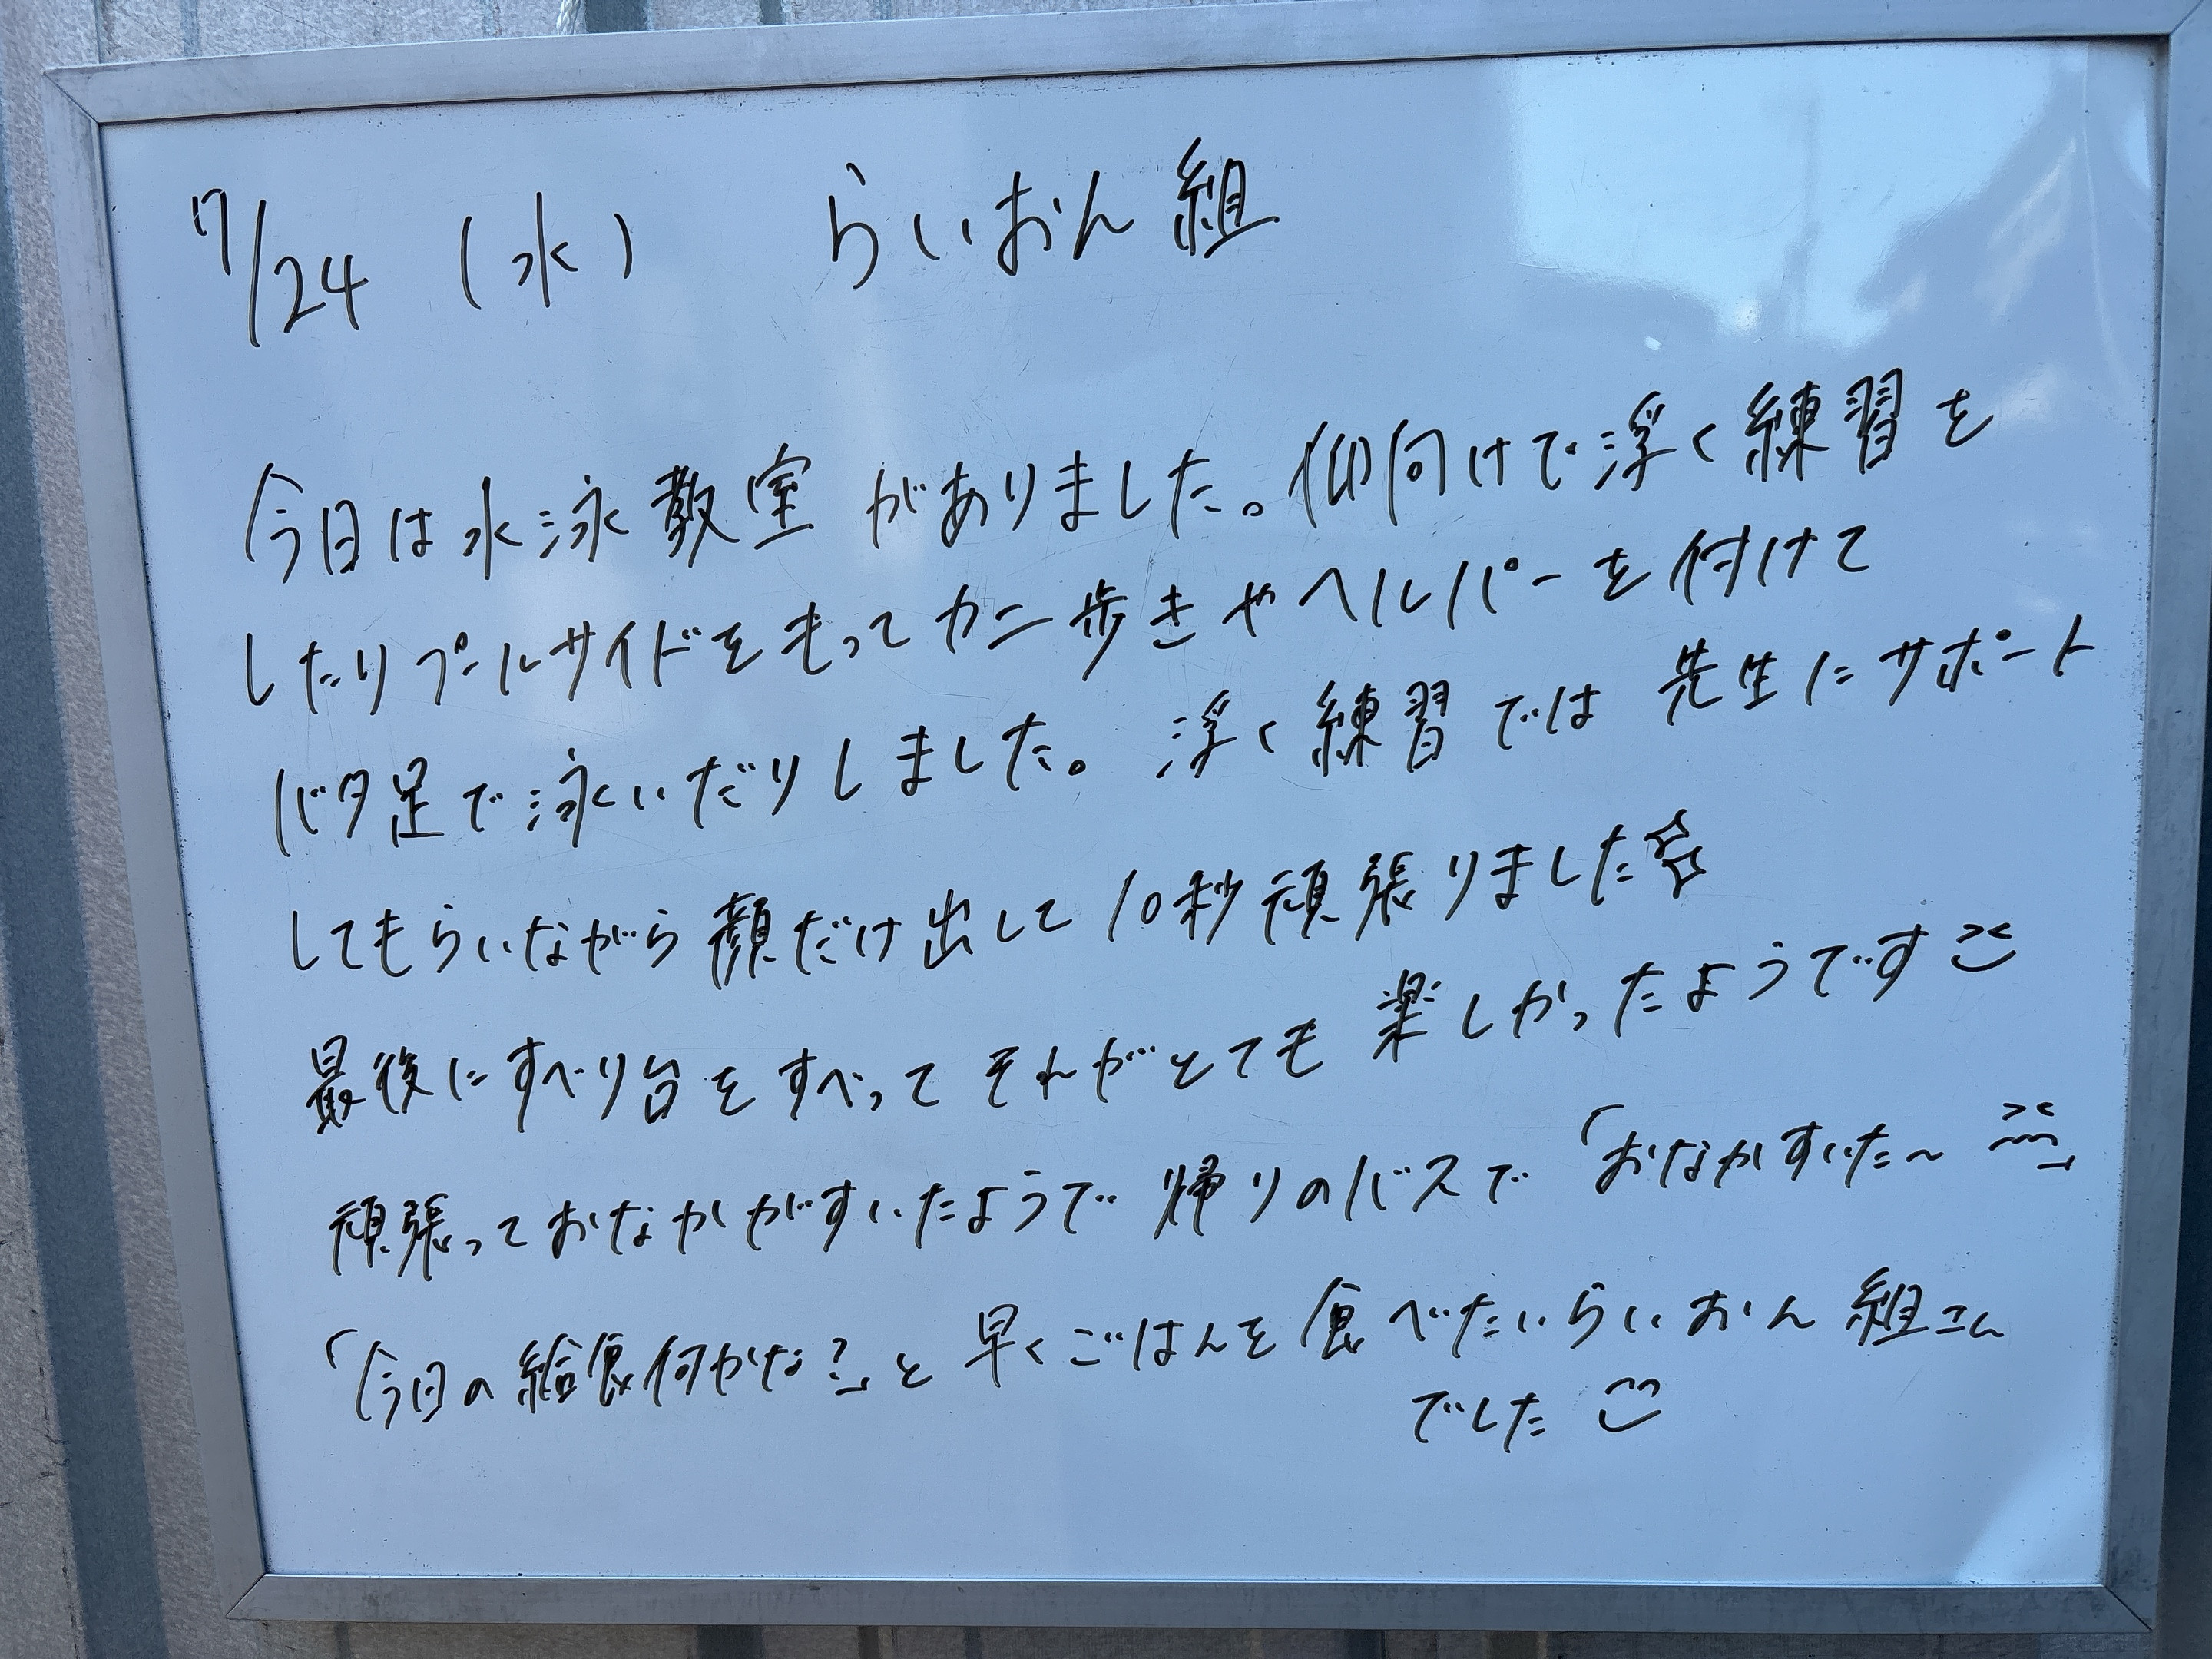 7/24 (水) らいおん組
今日は水泳教室がありました。仰向けで浮く練習を
したりプールサイドをもってカニ歩きやヘルパーを付けて
バタ足で泳いだりしました。浮く練習では先生にサポート
してもらいながら顔だけ出して10秒頑張りました
最後にすべり台をすべってそれがとても楽しかったようです
頑張っておなかがすいたようで帰りのバスで「おなかすいた~」
「今日の給食何かな?」と早くごはんを食べたいらいおん組さん
でした